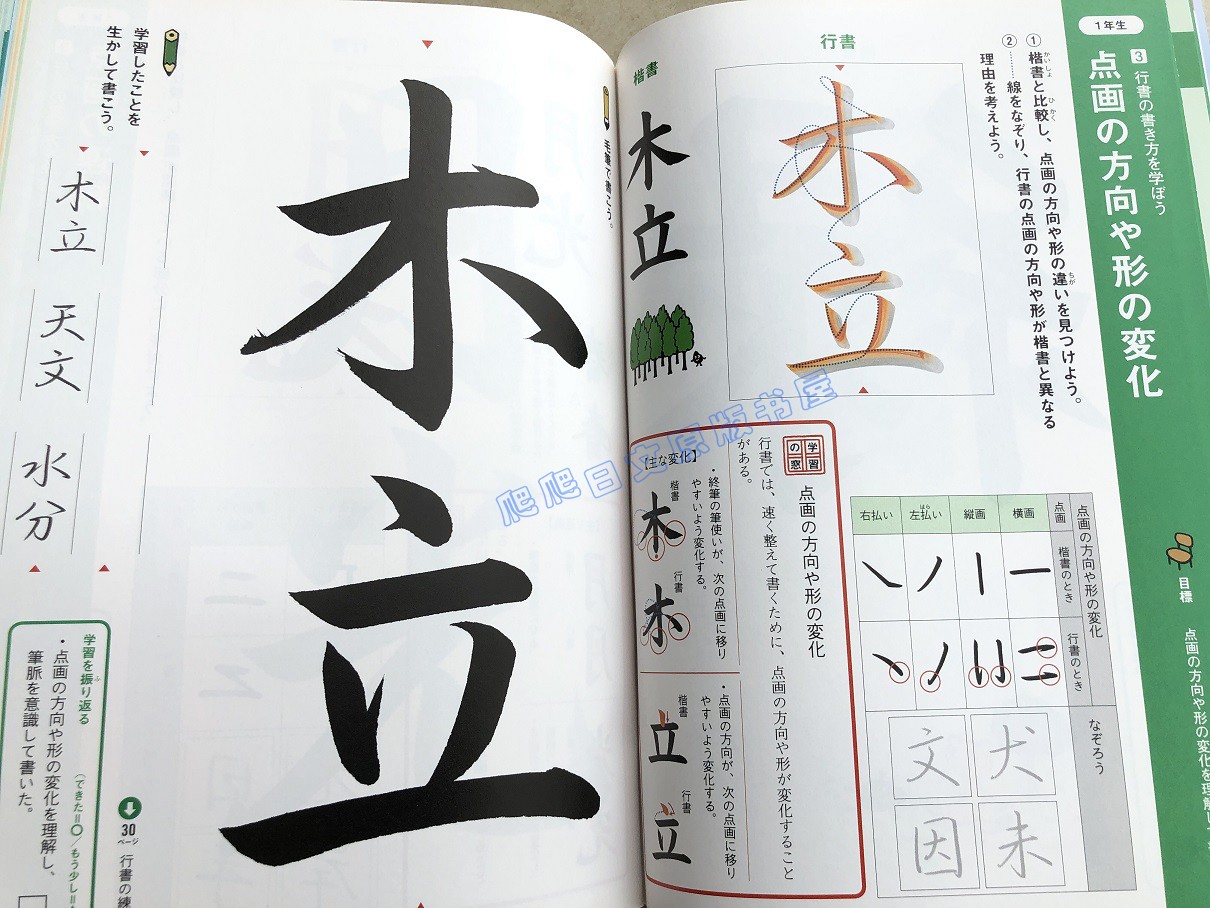 1年生
3 行書の書き方を学ぼう
点画の方向や形の変化
目標
点画の方向や形の変化を理解し
① 楷書と比較し、点画の方向や形の違いを見つけよう。
かいしょ
ひかく
ちが
② ……線をなぞり、行書の点画の方向や形が楷書と異なる
理由を考えよう。
行書
木立
楷書
木立
点画の方向や形の変化
点画
楷書のとき
行書のとき
なぞろう
横画
縦画
左払い
はら
右払い
犬
未
文
因
学習の窓
点画の方向や形の変化
行書では、速く整えて書くために、点画の方向や形が変化すること
がある。
【主な変化】
・終筆の筆使いが、次の点画に移り
やすいよう変化する。
楷書
木
行書
木
・点画の方向が、次の点画に移り
やすいよう変化する。
楷書
立
行書
立
毛筆で書こう。
木立
学習したことを
生かして書こう。
木立
天文
水分
30
ページ
行書の練
学習を振り返る
ふ
(できた=○/もう少し=
・点画の方向や形の変化を理解し、
筆脈を意識して書いた。
爬爬日文原版书屋